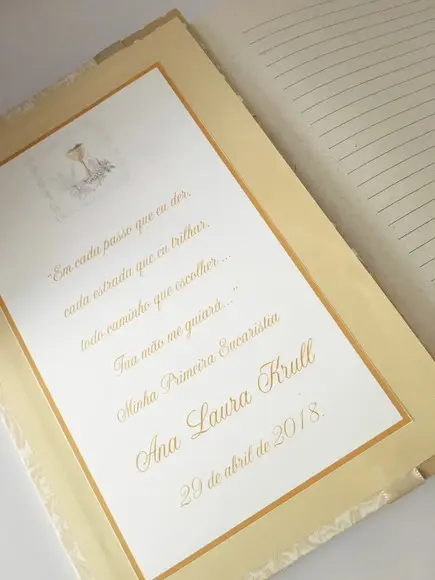 "Em cada passo que eu der,
cada estrada que eu trilhar.
todo caminho que escolher...
Tua mão me guiará..."
Minha Primeira Eucaristia
Ana Laura Krull
29 de abril de 2018.